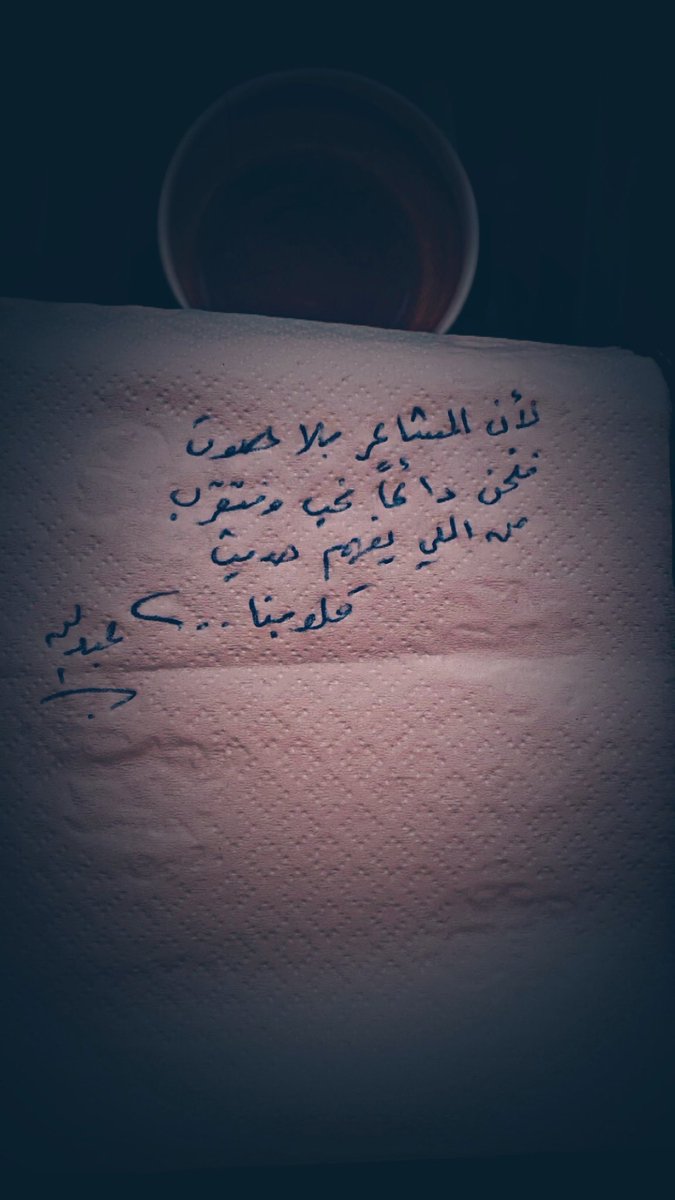 لأن المشاعر بلا صوت
فنحن دائماً نحب ونتقرب
من اللي يفهم حديث
قلوبنا ...
عبدالله